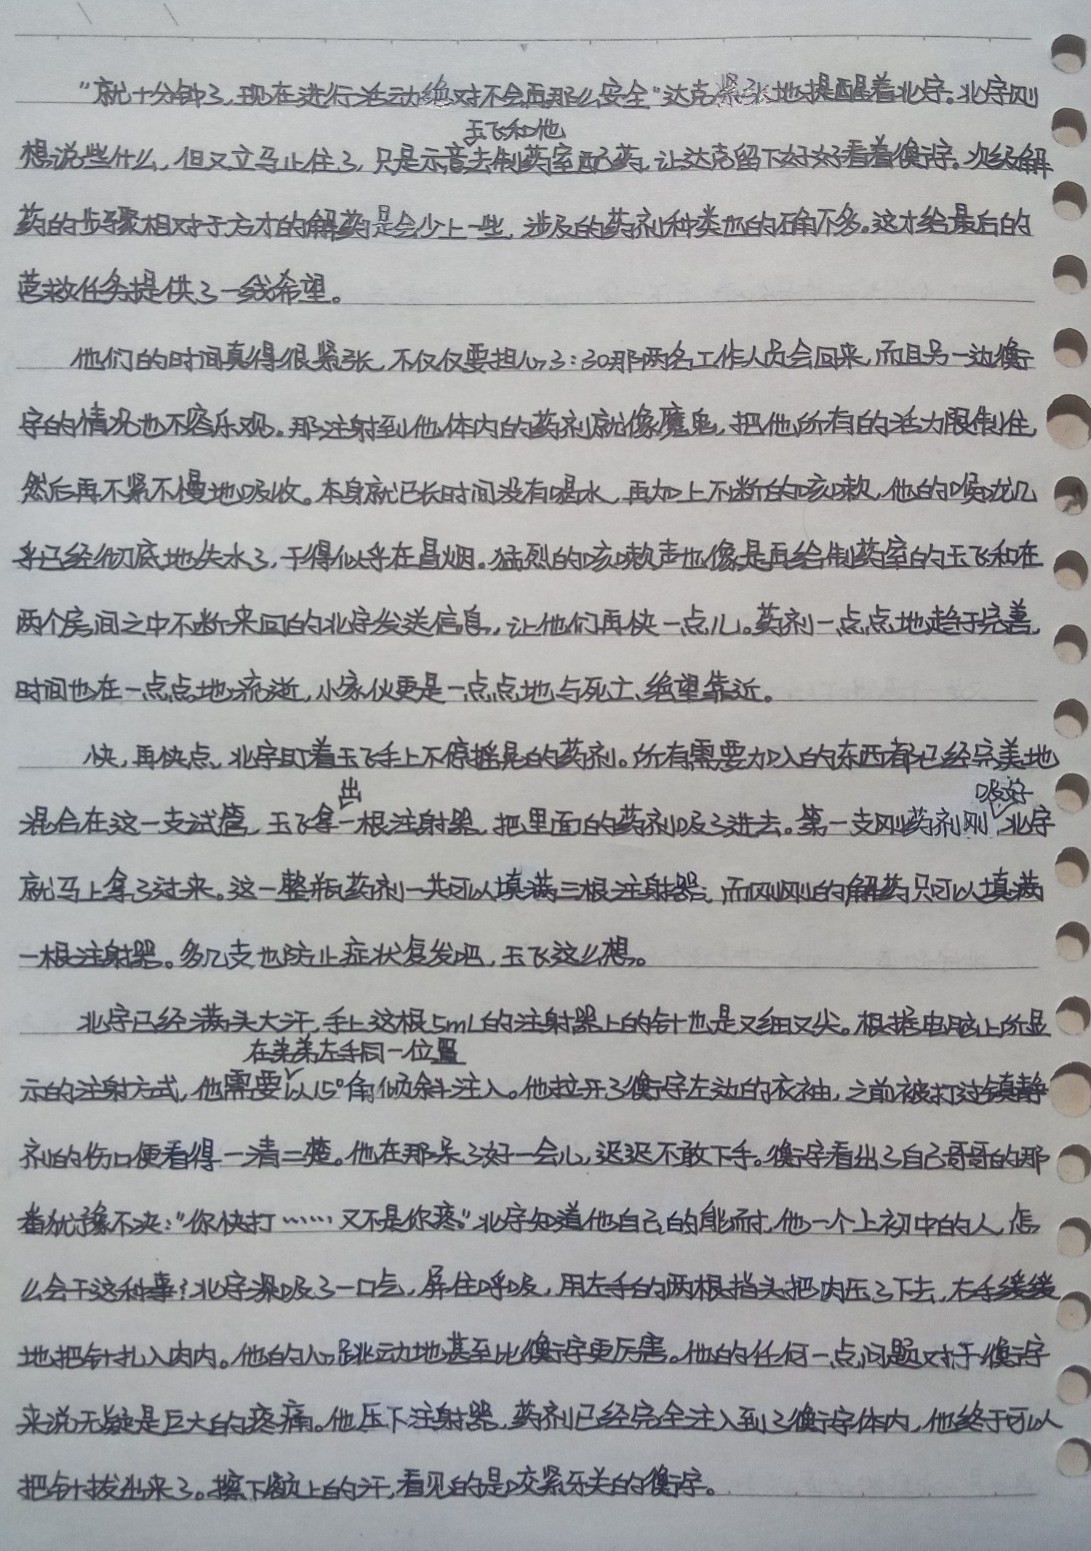 “就十分钟了，现在进行活动绝对不会再那么安全”达克紧张地提醒着北宇。北宇刚
玉飞和他
想说些什么，但又立马止住了，只是示意去制药室配药，让达克留下好好看着衡宇。次级解
药的步骤相对于方才的解药是会少上一些，涉及的药剂种类也的确不多。这才给最后的
营救任务提供了一线希望。
他们的时间真得很紧张，不仅仅要担心3:30那两名工作人员会回来，而且另一边衡
宇的情况也不容乐观。那注射到他体内的药剂就像魔鬼，把他所有的活力限制住，
然后再不紧不慢地吸收。本身就已长时间没有喝水，再加上不断的咳嗽，他的喉咙几
乎已经彻底地失水了，干得似乎在冒烟。猛烈的咳嗽声也像是再给制药室的玉飞和在
两个房间之中不断来回的北宇发送信息，让他们再快一点儿。药剂一点点地趋于完善，
时间也在一点点地流逝，小家伙更是一点点地与死亡、绝望靠近。
快，再快点，北宇盯着玉飞手上不停摇晃的药剂。所有需要加入的东西都已经完美地
出
吸好
混合在这一支试管，玉飞拿一根注射器，把里面的药剂吸了进去。第一支刚药剂刚，北宇
就马上拿了过来。这一整瓶药剂一共可以填满三根注射器，而刚刚的解药只可以填满
一根注射器。多几支也防止症状复发吧，玉飞这么想。
北宇已经满头大汗，手上这根5mL的注射器上的针也是又细又尖。根据电脑上所显
在弟弟左手同一位置
示的注射方式，他需要以15°角倾斜注入。他拉开了衡宇左边的衣袖，之前被打过镇静
剂的伤口便看得一清二楚。他在那呆了好一会儿，迟迟不敢下手。衡宇看出了自己哥哥的那
番犹豫不决：“你快打……又不是你疼。”北宇知道他自己的能耐，他一个上初中的人，怎
么会干这种事？北宇深吸了一口气，屏住呼吸，用左手的两根指头把肉压了下去，右手缓缓
地把针扎入肉内。他的心跳动地甚至比衡宇更厉害。他的任何一点问题对于衡宇
来说无疑是巨大的疼痛。他压下注射器，药剂已经完全注入到了衡宇体内，他终于可以
把针拔出来了。擦下额上的汗，看见的是咬紧牙关的衡宇。